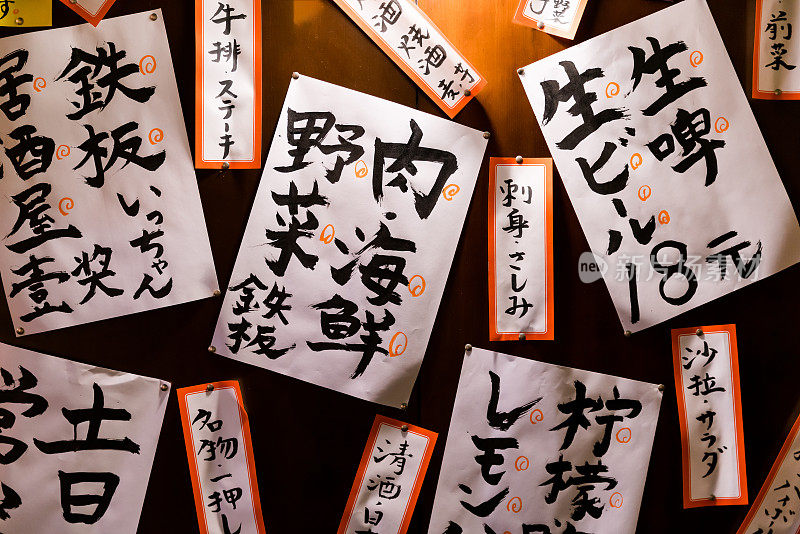 鉄板いっちゃん
居酒屋壹奖
牛排・ステーキ
酒・焼酒
前菜
野菜
肉・海鮮
野菜鉄板
刺身・さしみ
生啤
生ビール 18元
新片场
土日
名物・一押し
清酒
柠檬
レモン
沙拉・サラダ